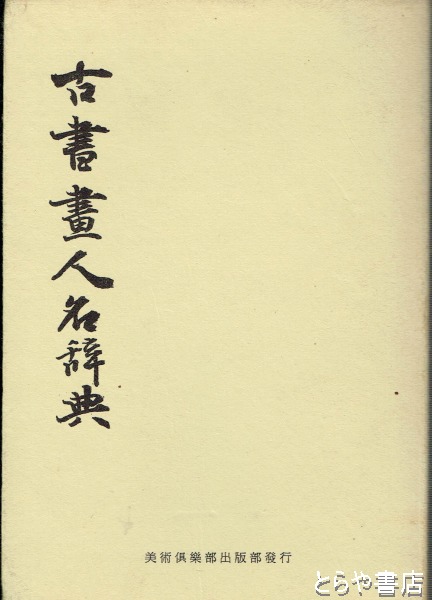 古書畫人名辞典
美術俱樂部出版部發行
とらや書店